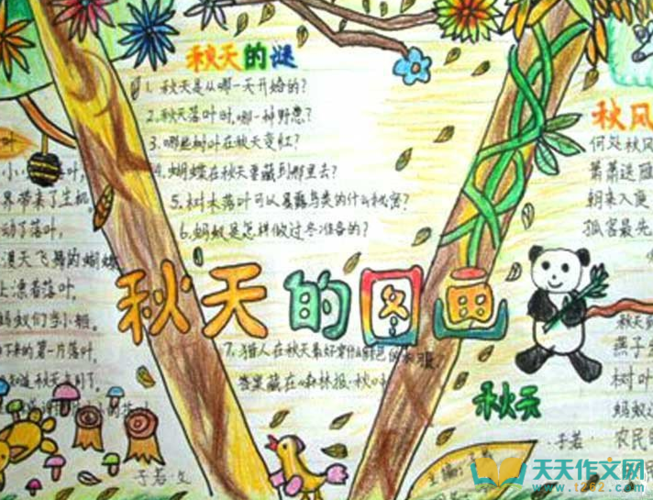 秋天的谜
1. 秋天是从哪一天开始的?
2. 秋天落叶时,哪一种野兽?
3. 哪些树叶在秋天变红?
4. 蝴蝶在秋天要藏到那里去?
5. 树木落叶可以暴露鸟类的什么秘密?
6. 蚂蚁是怎样做过冬准备的?
秋天的图画
7. 猎人在秋天最好穿什么颜色的衣服.
答案藏在《森林报·秋》
叶
叶,
界带来了生机
动了落叶,
漫天飞舞的蝴蝶
上漂着落叶,
蚂蚁们当小船,
下来的第一片落叶,
子若·文
秋风
何处秋风
萧萧送雁
朝来入庭
孤客最先
秋天
秋天到
燕子
树叶
蚂蚁
农民
·子若·
主编:
天天作文网
www.1262.com